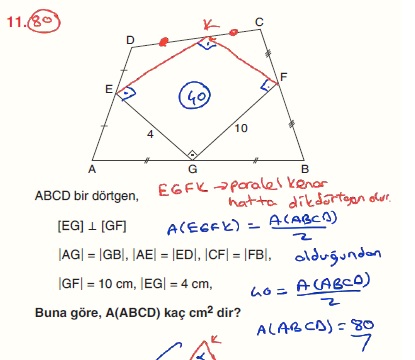 11. 80
K
C
D
E
F
40
4
10
A
G
B
ABCD bir dörtgen,
EGFK → paralel kenar
hatta dikdörtgen olur.
[EG] ⊥ [GF]
A(EGFK) = A(ABCD)/2
|AG| = |GB|, |AE| = |ED|, |CF| = |FB|,
olduğundan
|GF| = 10 cm, |EG| = 4 cm,
40 = A(ABCD)/2
Buna göre, A(ABCD) kaç cm² dir?
A(ABCD) = 80
K